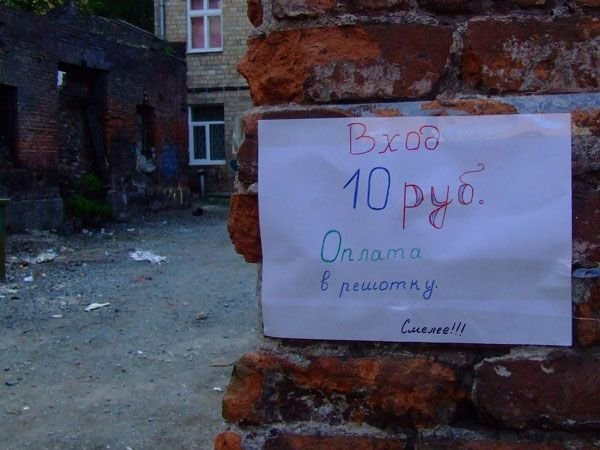 Вход
10 руб.
Оплата
в решотку.
Смелее!!!